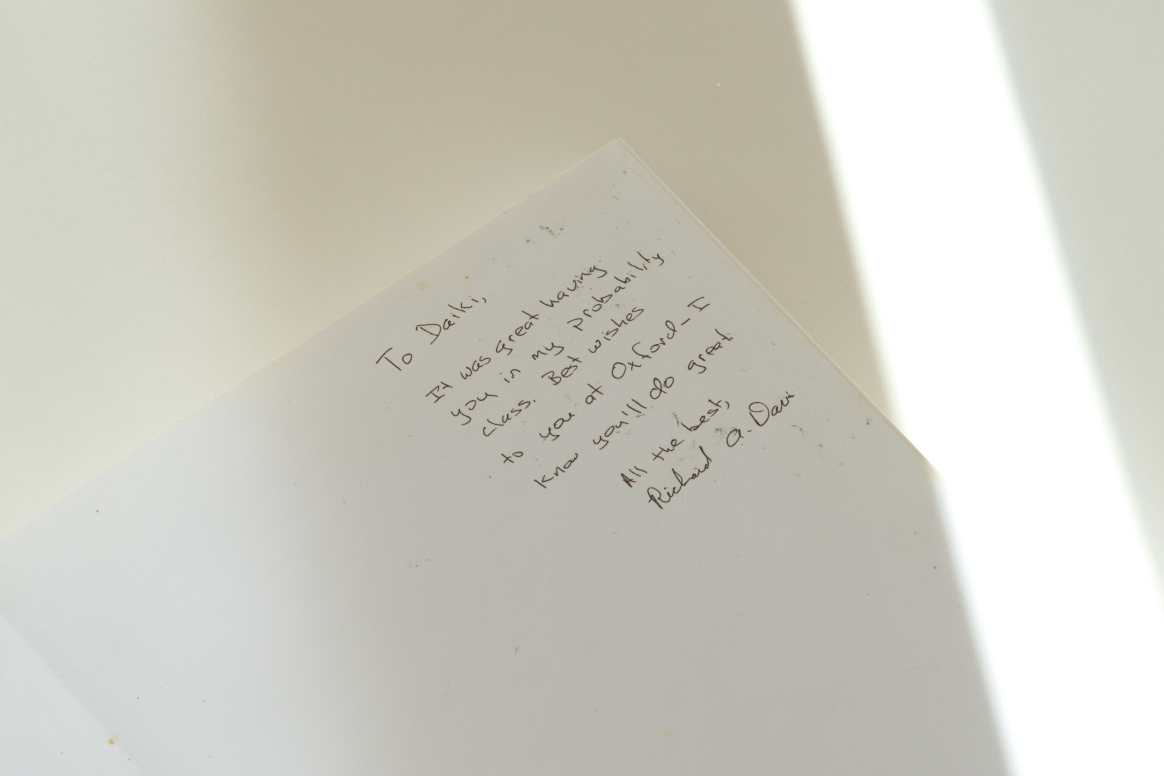 To Daiki,
It was great having
you in my probability
class. Best wishes
to you at Oxford – I
know you'll do great
All the best,
Richard A. Davis